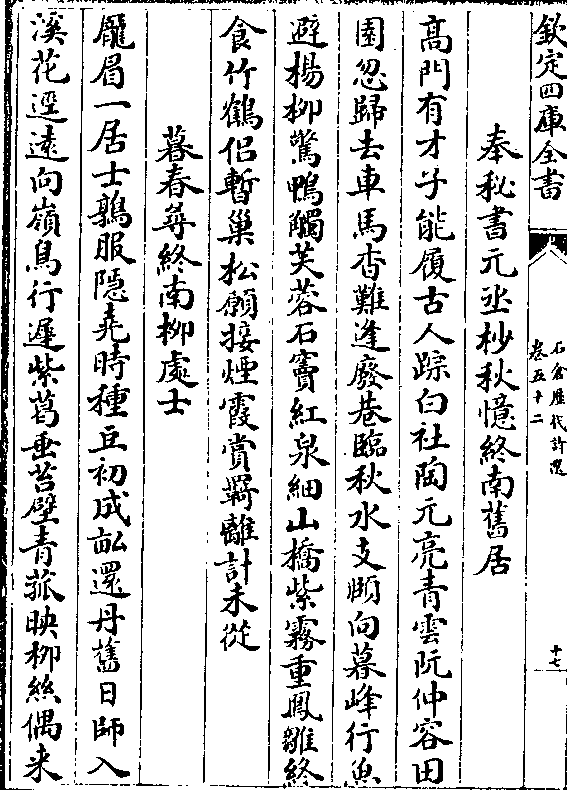 欽定四庫全書
石倉歷代詩選
卷五十二
十七
奉秘書元丞杪秋憶終南舊居
高門有才子能履古人踪白社陶元亮青雲阮仲容田
園忽歸去車馬杳難逢廢巷臨秋水支頤向暮峰行魚
避楊柳驚鴨觸芙蓉石竇紅泉細山橋紫霧重鳳雛終
食竹鶴侶暫巢松願接煙霞賞羇離計未從
暮春尋終南柳處士
龎眉一居士鶉服隠堯時種豆初成畝還丹舊日師入
溪花逕逺向嶺鳥行遲紫葛垂苔壁青菰映柳絲偶來